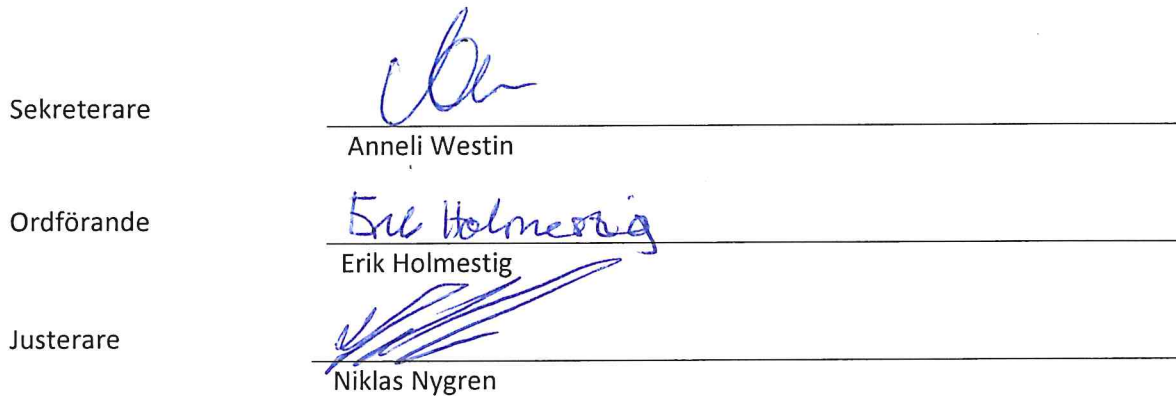 Sekreterare
Anneli Westin
Ordförande
Erik Holmestig
Erik Holmestig
Justerare
Niklas Nygren